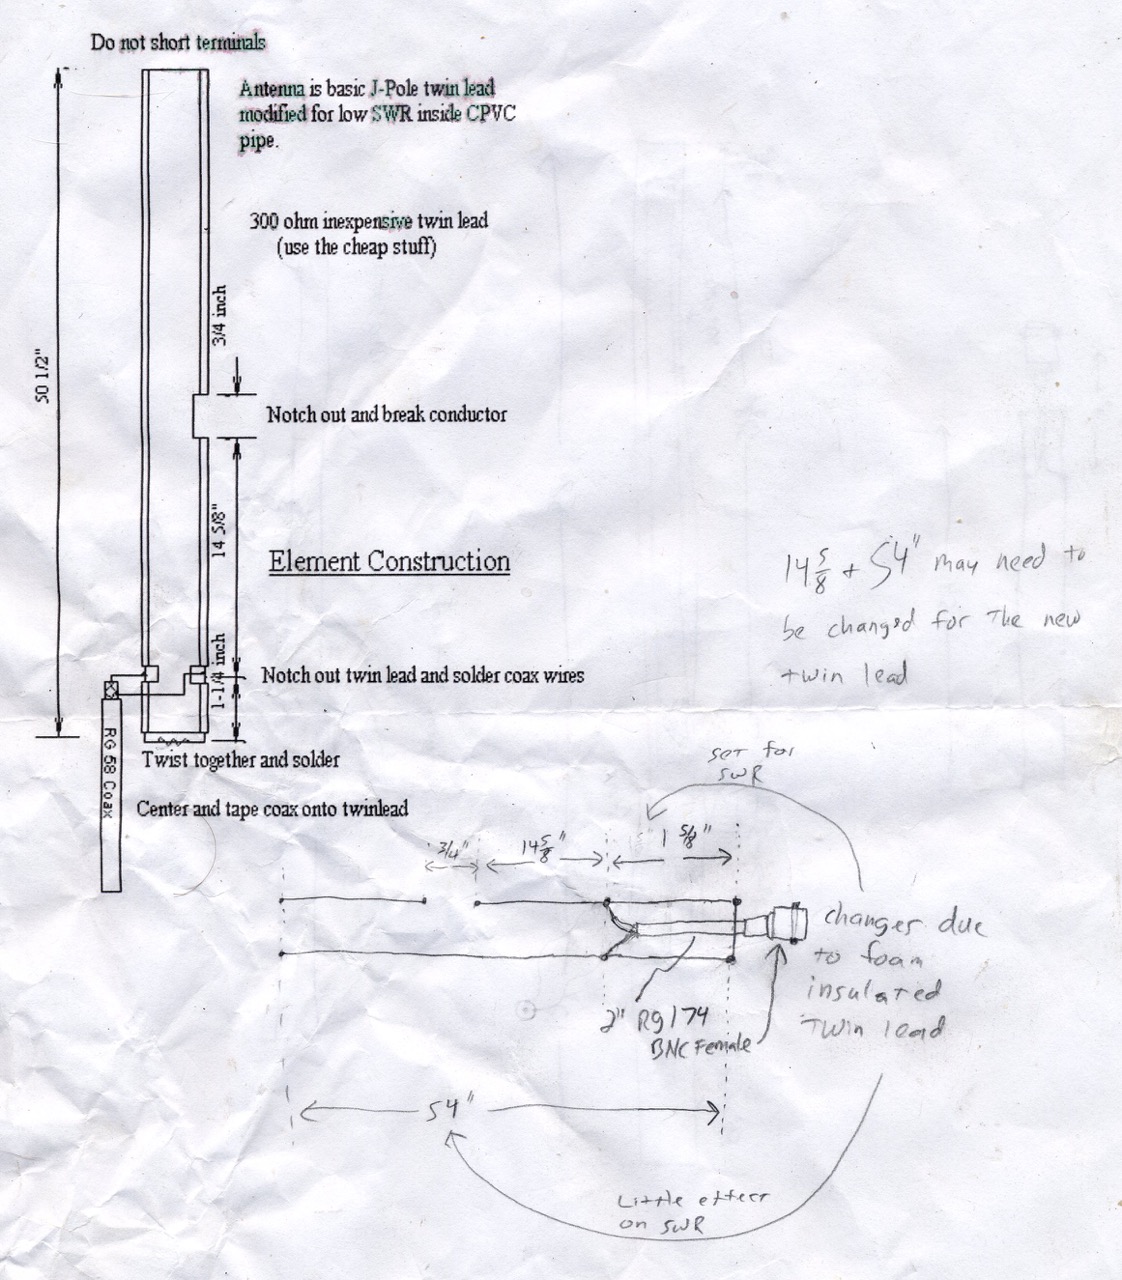 Do not short terminals
Antenna is basic J-Pole twin lead
modified for low SWR inside CPVC
pipe.
300 ohm inexpensive twin lead
(use the cheap stuff)
3/4 inch
50 1/2"
Notch out and break conductor
14 5/8"
Element Construction
14 5/8 + 54" may need to
be changed for the new
twin lead
1-1/4 inch
Notch out twin lead and solder coax wires
RG 58 Coax
Twist together and solder
Center and tape coax onto twinlead
set for
SWR
3/4"
14 5/8"
1 5/8"
changes due
to foam
insulated
Twin lead
2" RG174
BNC Female
54"
Little effect
on SWR